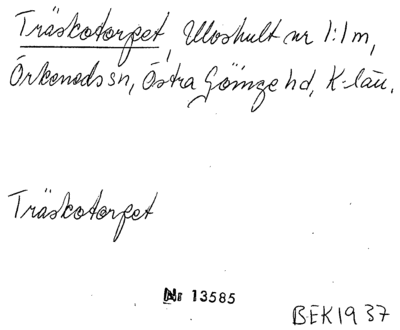 Träskotorpet, Uloshult nr 1:1 m,
Örkeneds sn, Östra Göinge hd, K-län.
Träskotorpet
Nr 13585
BEK 19 37